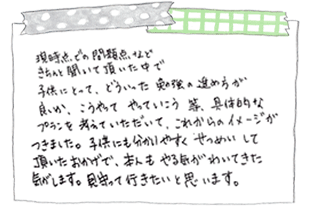 現時点での問題点など
きちんと聞いて頂いた中で
子供にとって、どういった勉強の進め方が
良いか、こうやってやっていこう等、具体的な
プランを考えていただいて、これからのイメージが
つきました。子供にも分かりやすくせつめいして
頂いたおかげで、本人もやる気がわいてきた
気がします。見守って行きたいと思います。